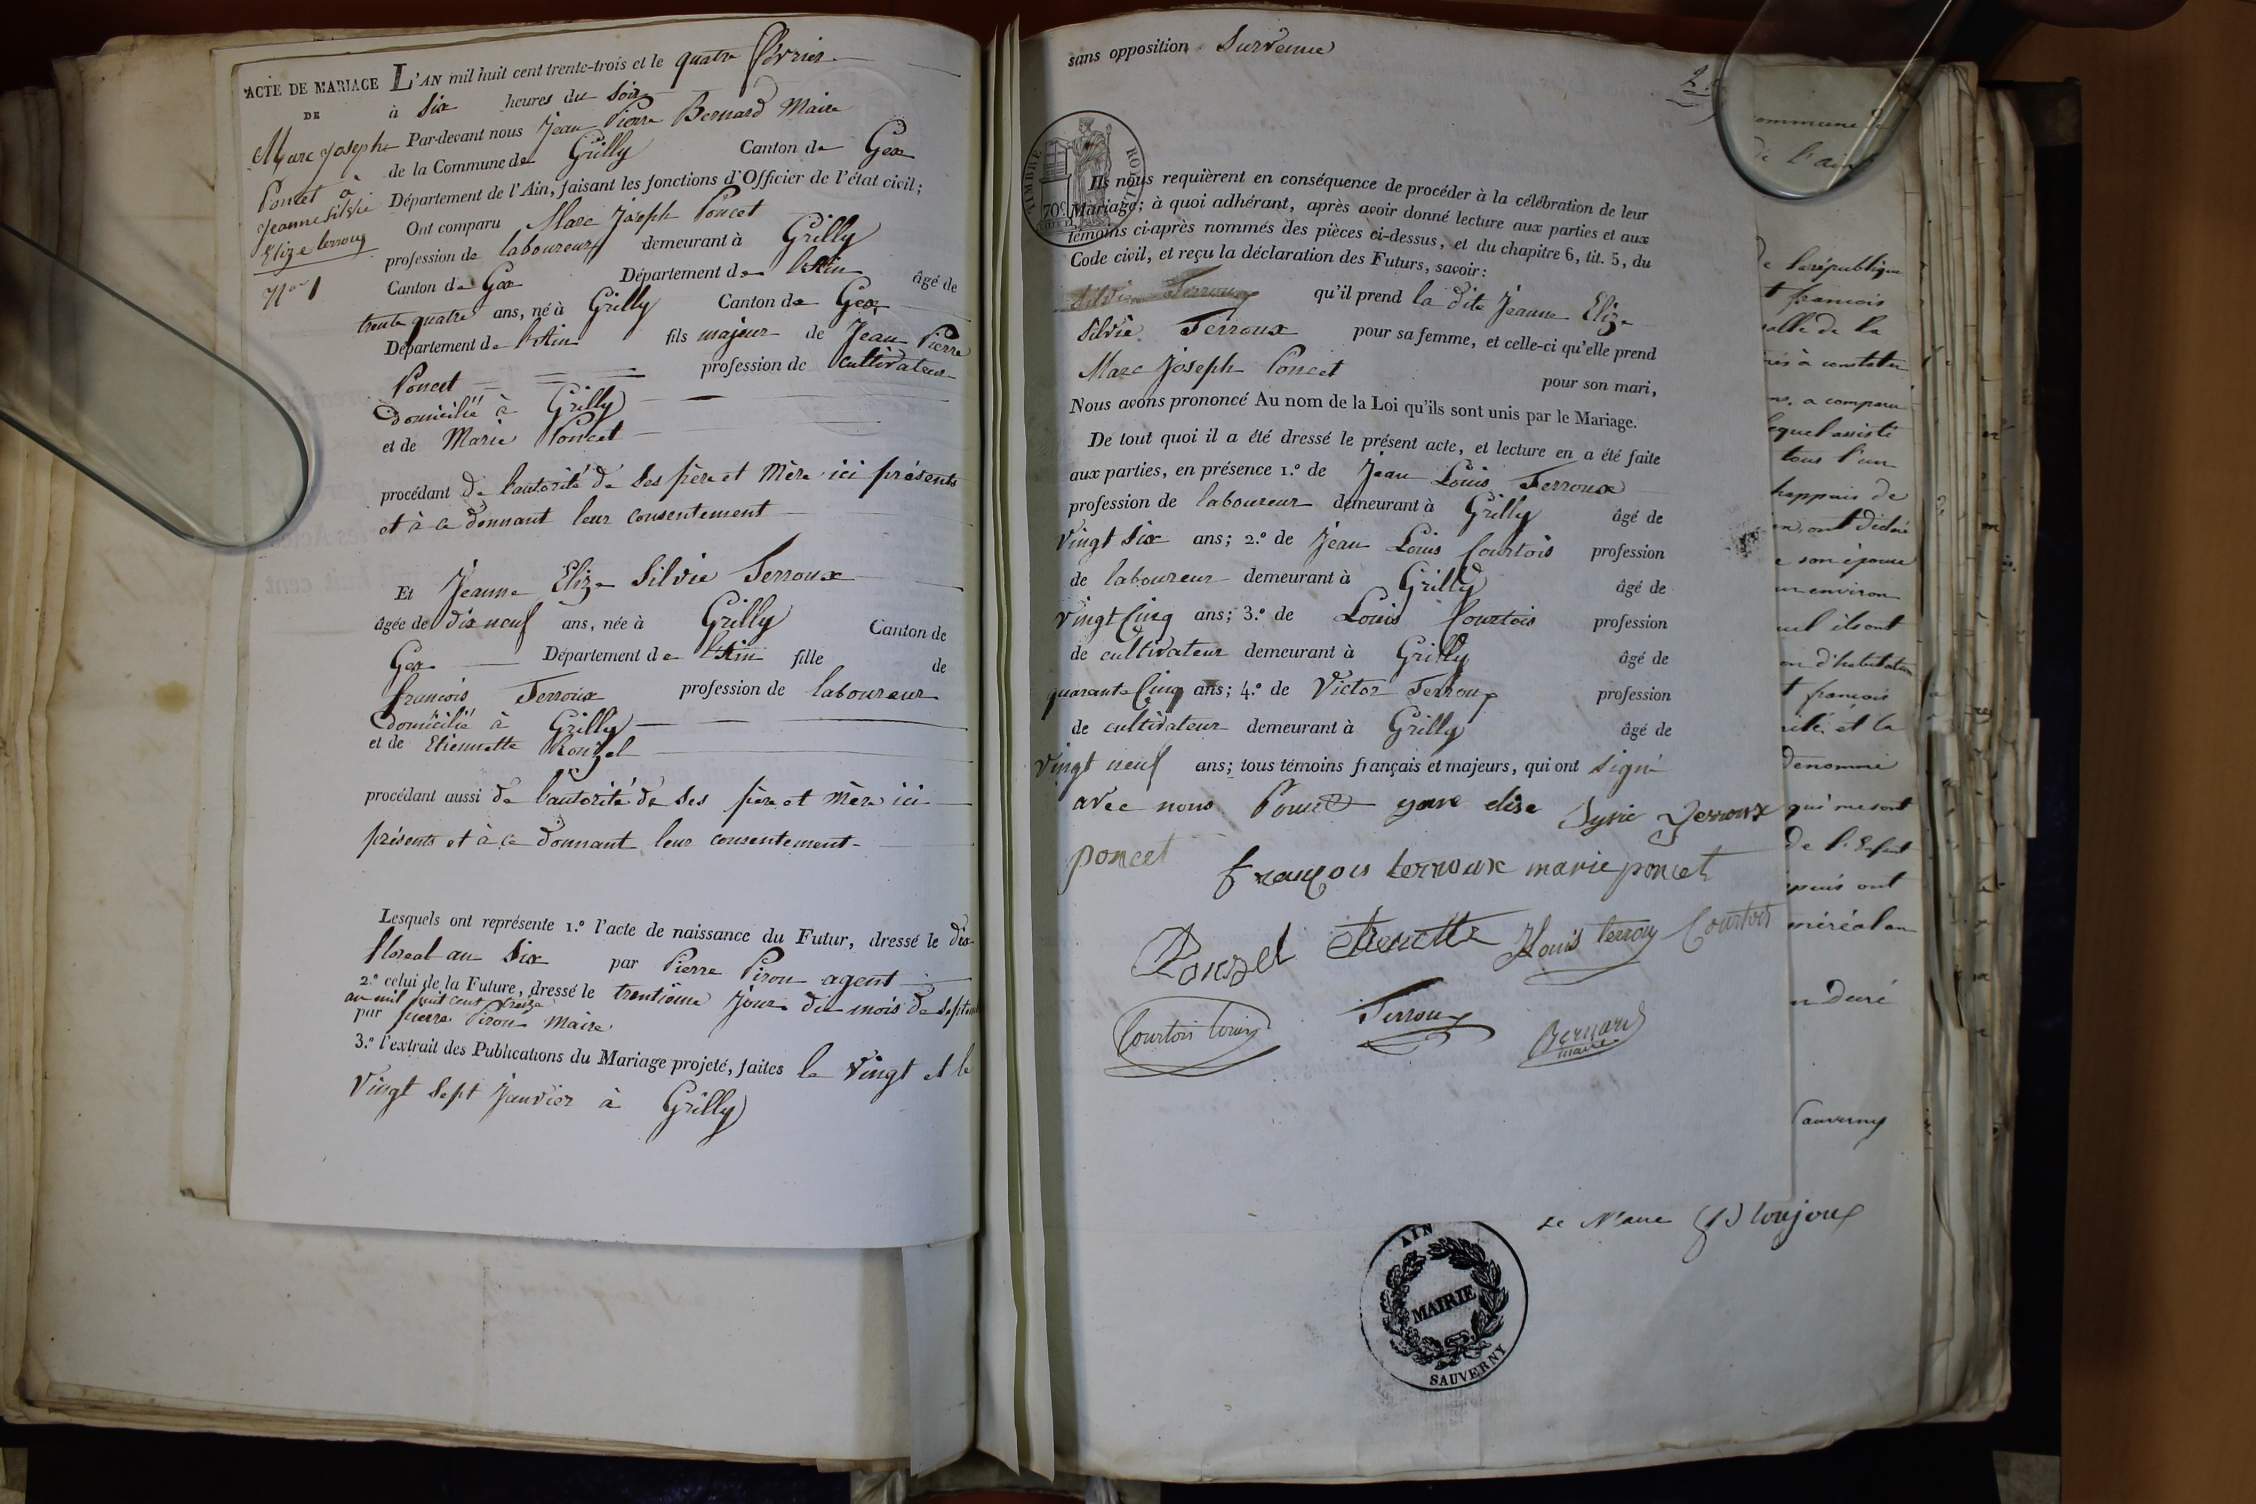 ACTE DE MARIAGE
DE
Marc Joseph
Poncet à
Jeanne Silvie
Elize terroux
N.o 1
L'AN mil huit cent trente-trois et le quatre février
à Six heures du Soir
Par-devant nous Jean Pierre Bernard Maire
de la Commune de Grilly Canton de Gex
Département de l'Ain, faisant les fonctions d'Officier de l'état civil;
Ont comparu Marc Joseph Poncet
profession de laboureur demeurant à Grilly
Canton de Gex Département de l'Ain âgé de
trente quatre ans, né à Grilly Canton de Gex
Département de l'Ain fils majeur de Jean Pierre
Poncet profession de Cultivateur
Domicilié à Grilly
et de Marie Poncet
procédant de l'autorité de Ses père et Mère ici présents
et à ce donnant leur consentement
Et Jeanne Elize Silvie Terroux
âgée de dix neuf ans, née à Grilly Canton de
Gex Département de l'Ain fille de
françois Terroux profession de laboureur
Domicilié à Grilly
et de Etiennette Rouzel
procédant aussi de l'autorité de Ses père et Mère ici
présents et à ce donnant leur consentement
Lesquels ont représente 1.º l'acte de naissance du Futur, dressé le dix
floreal an Six par Pierre Piron agent
2.º celui de la Future, dressé le trentième Jour du mois de Septembre
an mil huit cent treize
par pierre Piron Maire
3.º l'extrait des Publications du Mariage projeté, faites le Vingt et le
Vingt Sept Janvier à Grilly
sans opposition Survenue
TIMBRE ROYAL
70c
Ils nous requièrent en conséquence de procéder à la célébration de leur
Mariage; à quoi adhérant, après avoir donné lecture aux parties et aux
témoins ci-après nommés des pièces ci-dessus, et du chapitre 6, tit. 5, du
Code civil, et reçu la déclaration des Futurs, savoir:
Silvie Terroux qu'il prend la dite Jeanne Elize
Silvie Terroux pour sa femme, et celle-ci qu'elle prend
Marc Joseph Poncet pour son mari,
Nous avons prononcé Au nom de la Loi qu'ils sont unis par le Mariage.
De tout quoi il a été dressé le présent acte, et lecture en a été faite
aux parties, en présence 1.º de Jean Louis Terroux
profession de laboureur demeurant à Grilly âgé de
Vingt Six ans; 2.º de Jean Louis Courtois profession
de laboureur demeurant à Grilly âgé de
Vingt Cinq ans; 3.º de Louis Courtois profession
de cultivateur demeurant à Grilly âgé de
quarante Cinq ans; 4.º de Victor Terroux profession
de cultivateur demeurant à Grilly âgé de
Vingt neuf ans; tous témoins français et majeurs, qui ont signé
avec nous Poncet elise Terroux
poncet françois terroux marie poncet
Rouzel Louis terroux Courtois
Courtois Louis Terroux Bernard
maire
commune de
de l'ain
de la république
t francois
salle de la
a comparu
lequel assisté
tous l'un
ont déclaré
son épouse
environ
ils ont
d'habitation
t françois
et la
dénommé
qui me sont
de l'Enfant
ont
Sauverny
Le Maire
AIN
MAIRIE
SAUVERNY